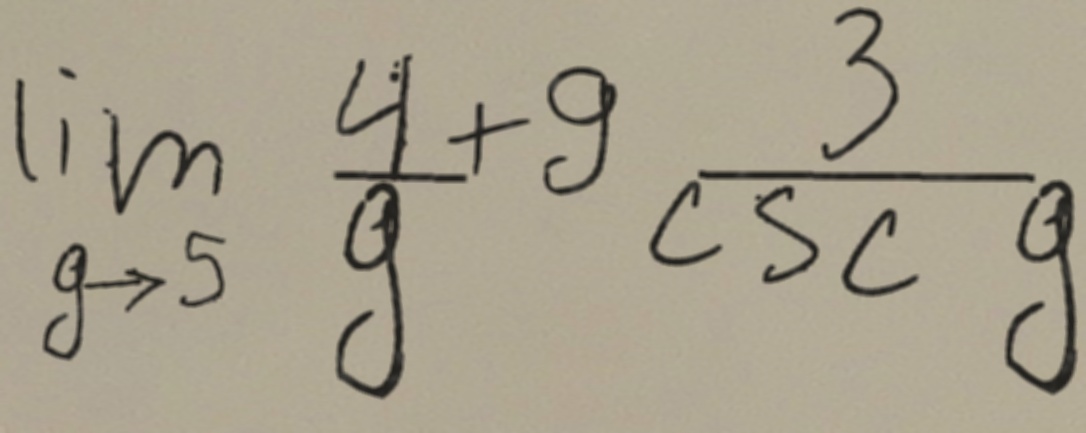 \lim_{g \to 5} \frac{4}{g} + g \frac{3}{\csc g}